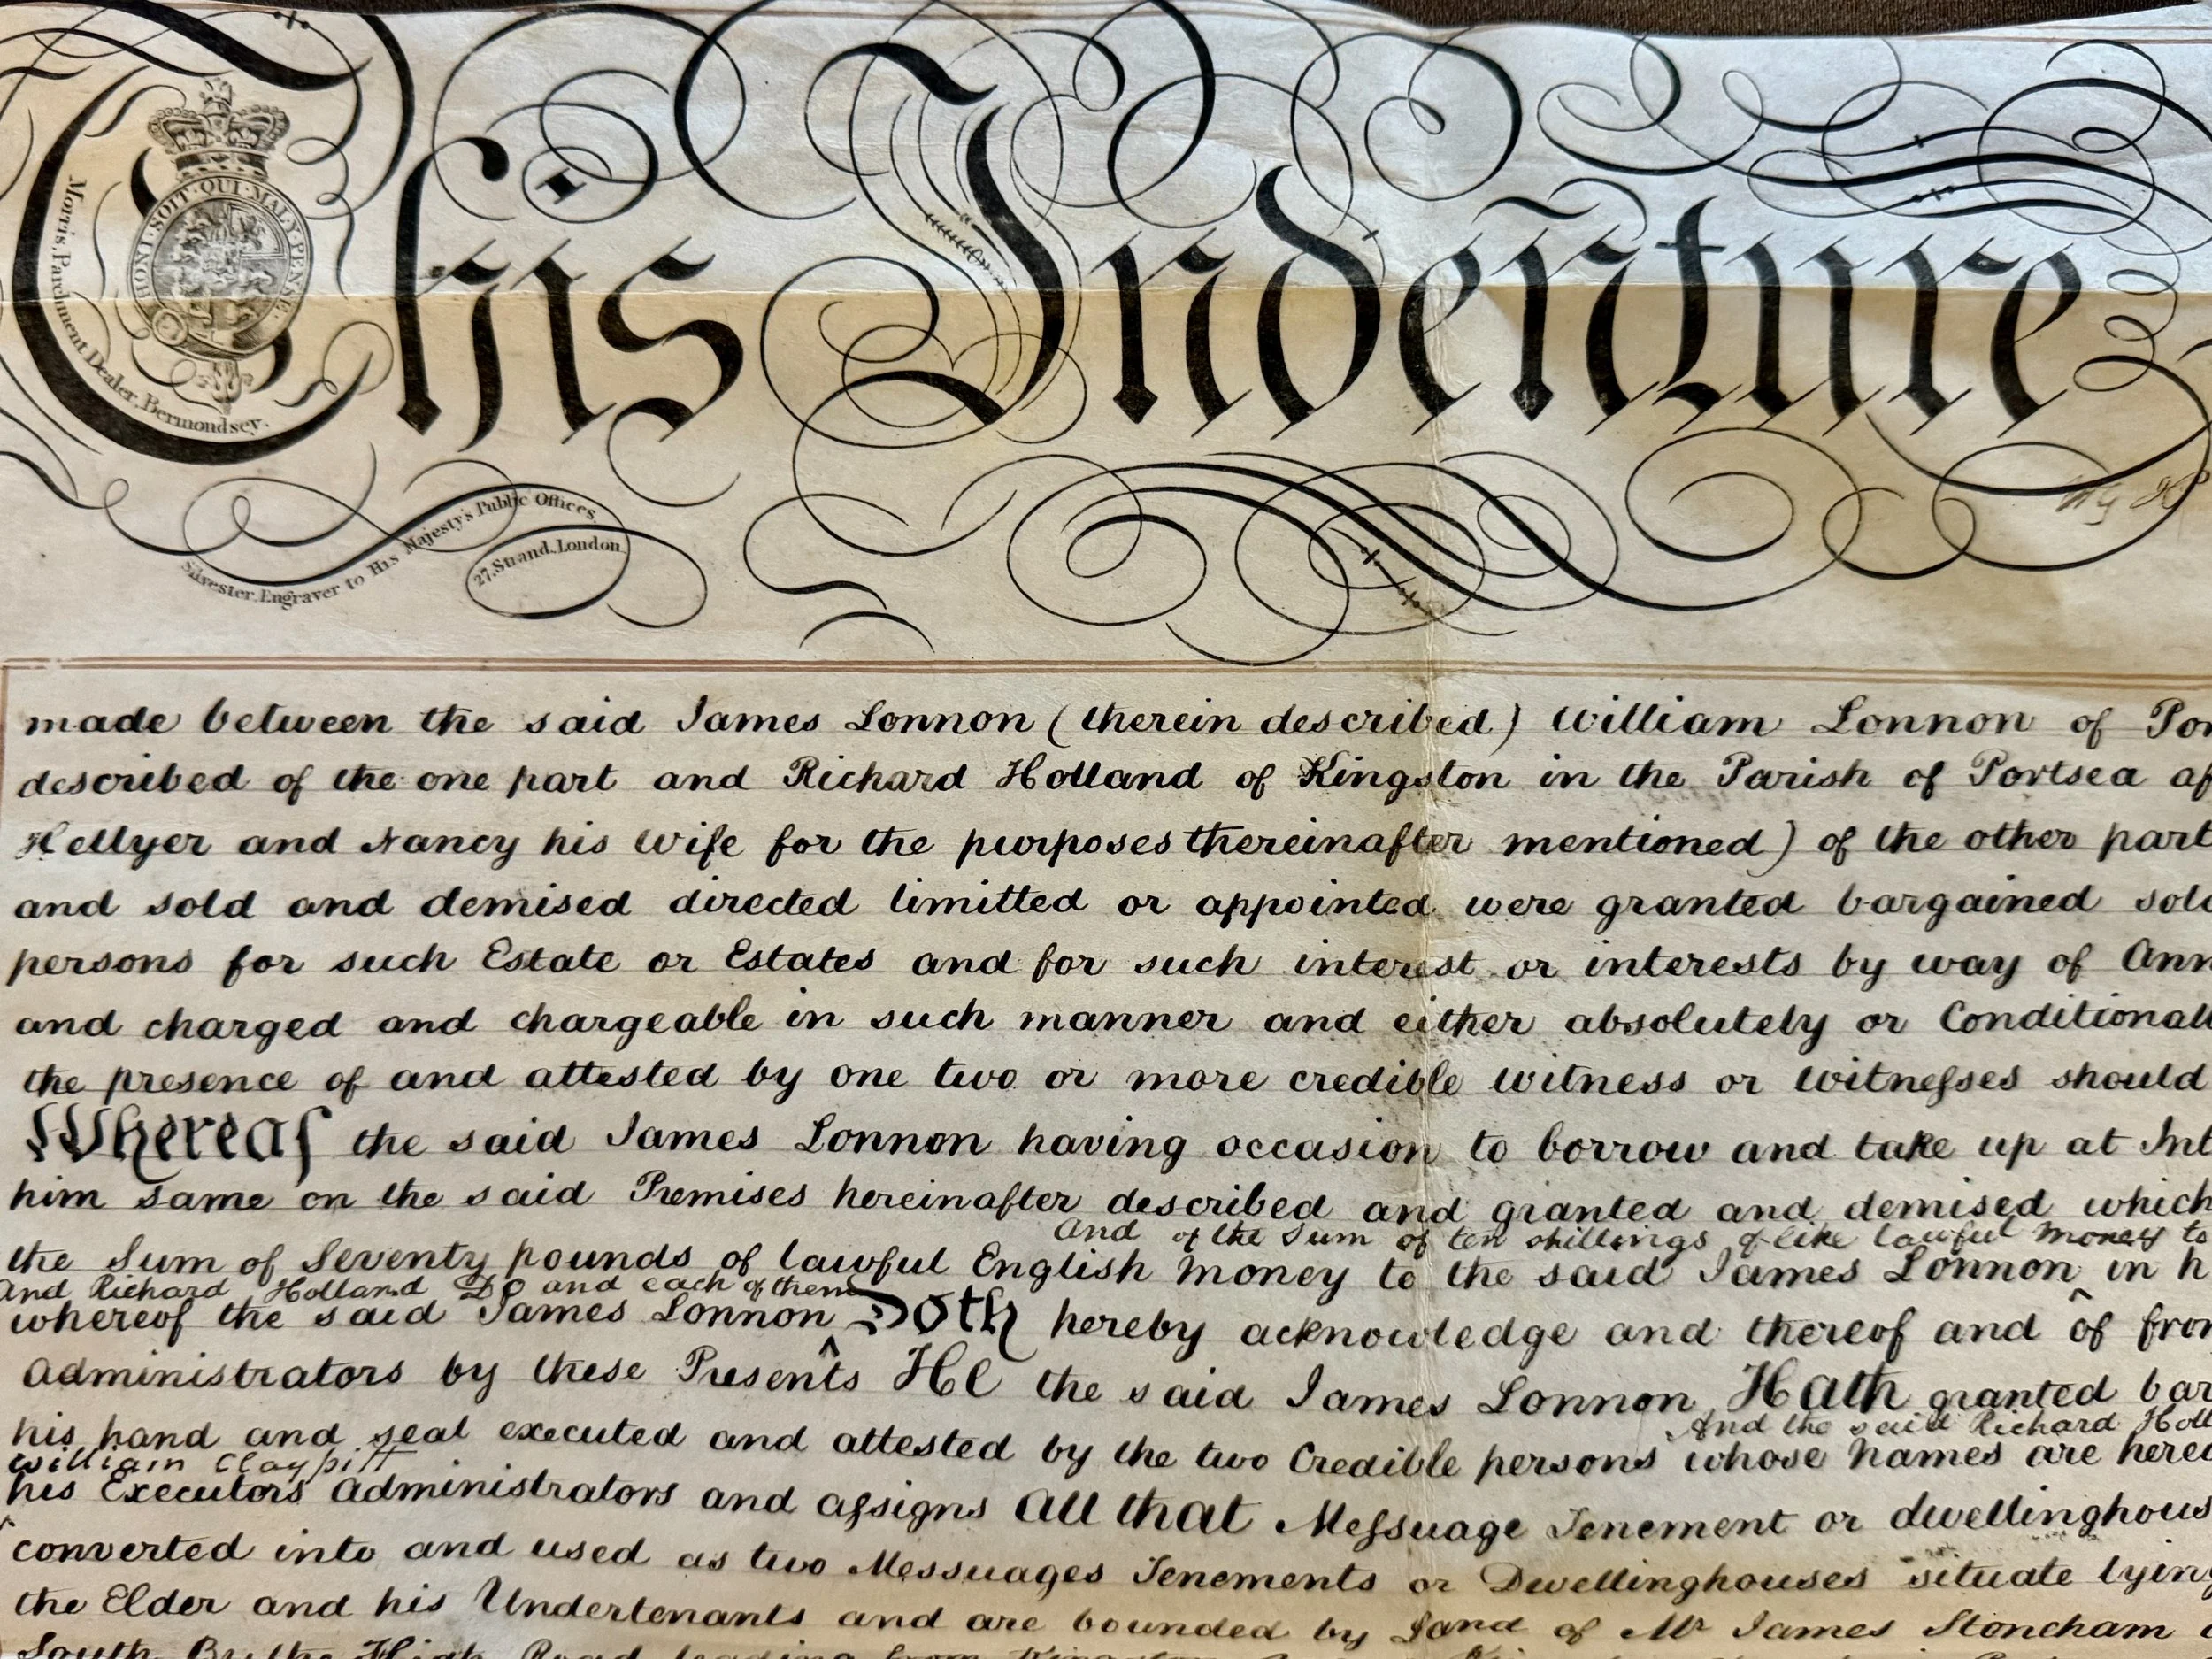 This Indenture
HONI·SOIT·QUI·MAL·Y·PENSE.
Morris, Parchment Dealer, Bermondsey.
Silvester, Engraver to His Majesty's Public Offices,
27, Strand, London
made between the said James Lonnon (therein described) William Lonnon of Por
described of the one part and Richard Holland of Kingston in the Parish of Portsea af
Hellyer and Nancy his Wife for the purposes thereinafter mentioned) of the other part
and sold and demised directed limitted or appointed were granted bargained sold
persons for such Estate or Estates and for such interest or interests by way of Ann
and charged and chargeable in such manner and either absolutely or Conditionall
the presence of and attested by one two or more credible witness or witnesses should
Whereas the said James Lonnon having occasion to borrow and take up at Int
him same on the said Premises hereinafter described and granted and demised which
And of the Sum of ten shillings of like lawful money to
the Sum of Seventy pounds of lawful English Money to the said James Lonnon in h
And Richard Holland DO and each of them
whereof the said James Lonnon Doth hereby acknowledge and thereof and of from
Administrators by these Presents He the said James Lonnon Hath granted bar
And the said Richard Holl
his hand and seal executed and attested by the two Credible persons whose Names are here
William Claypitt
his Executors Administrators and assigns All that Messuage Tenement or dwellinghous
converted into and used as two Messuages Tenements or Dwellinghouses situate lying
the Elder and his Undertenants and are bounded by Land of Mr James Stoncham
South By the High Road leading from Kingston